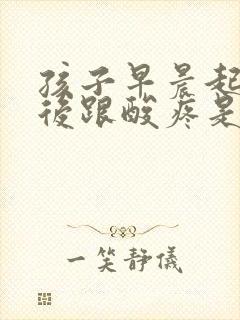 孩子早晨起
後跟酸疼是
一笑靜儀